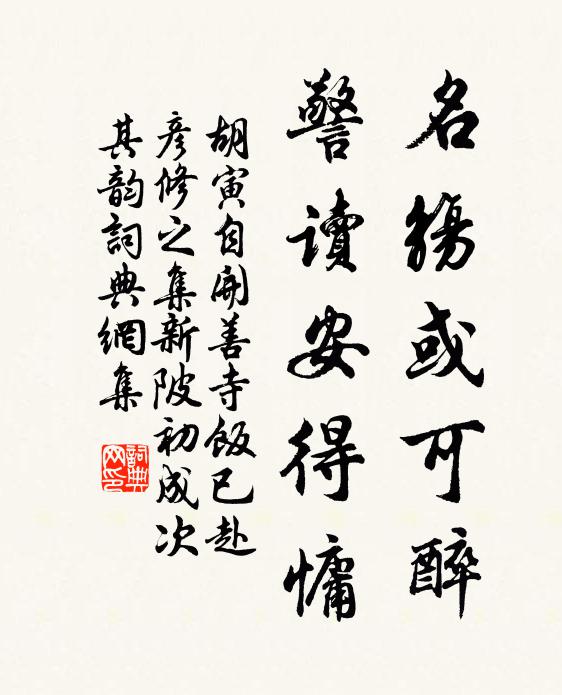 名觴或可醉
警讀安得慵
胡寅自開善寺飯已赴
彥修之集新陂初成次
其韵詞典網集
詞典
网印